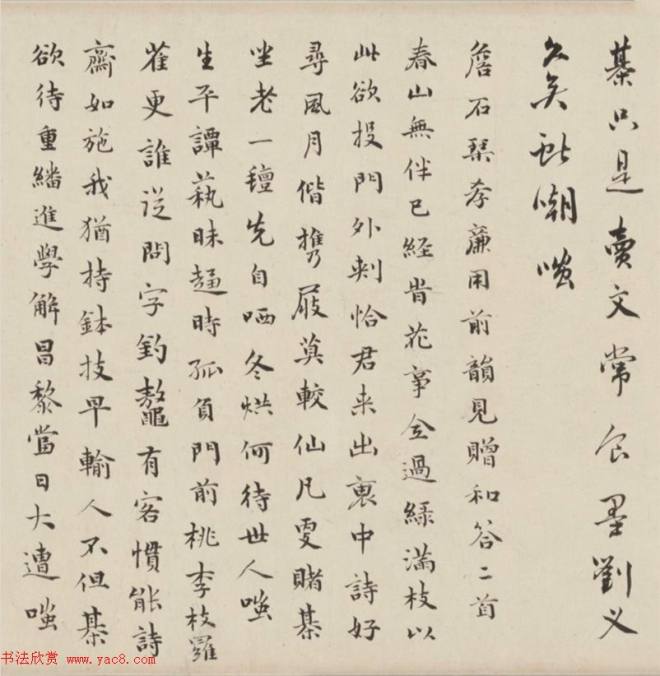 棊只是賣文常食墨劉义
嘲嗤
詹石琴孝廉用前韻見贈和答二首
春山無伴已經旹花事全過綠滿枝以
此欲投門外刺恰君来出裏中詩好
尋風月偕攜屐莫較仙凡更賭棊
坐老一氊先自哂冬烘何待世人嗤
生平譚蓺昧趨時孤負門前桃李枝羅
雀更誰從問字釣鼇有客慣能詩
齋如施我猶持鉢技早輸人不但棊
欲待重繙進學解昌黎當日大遭嗤
书法欣赏 www.yac8.com